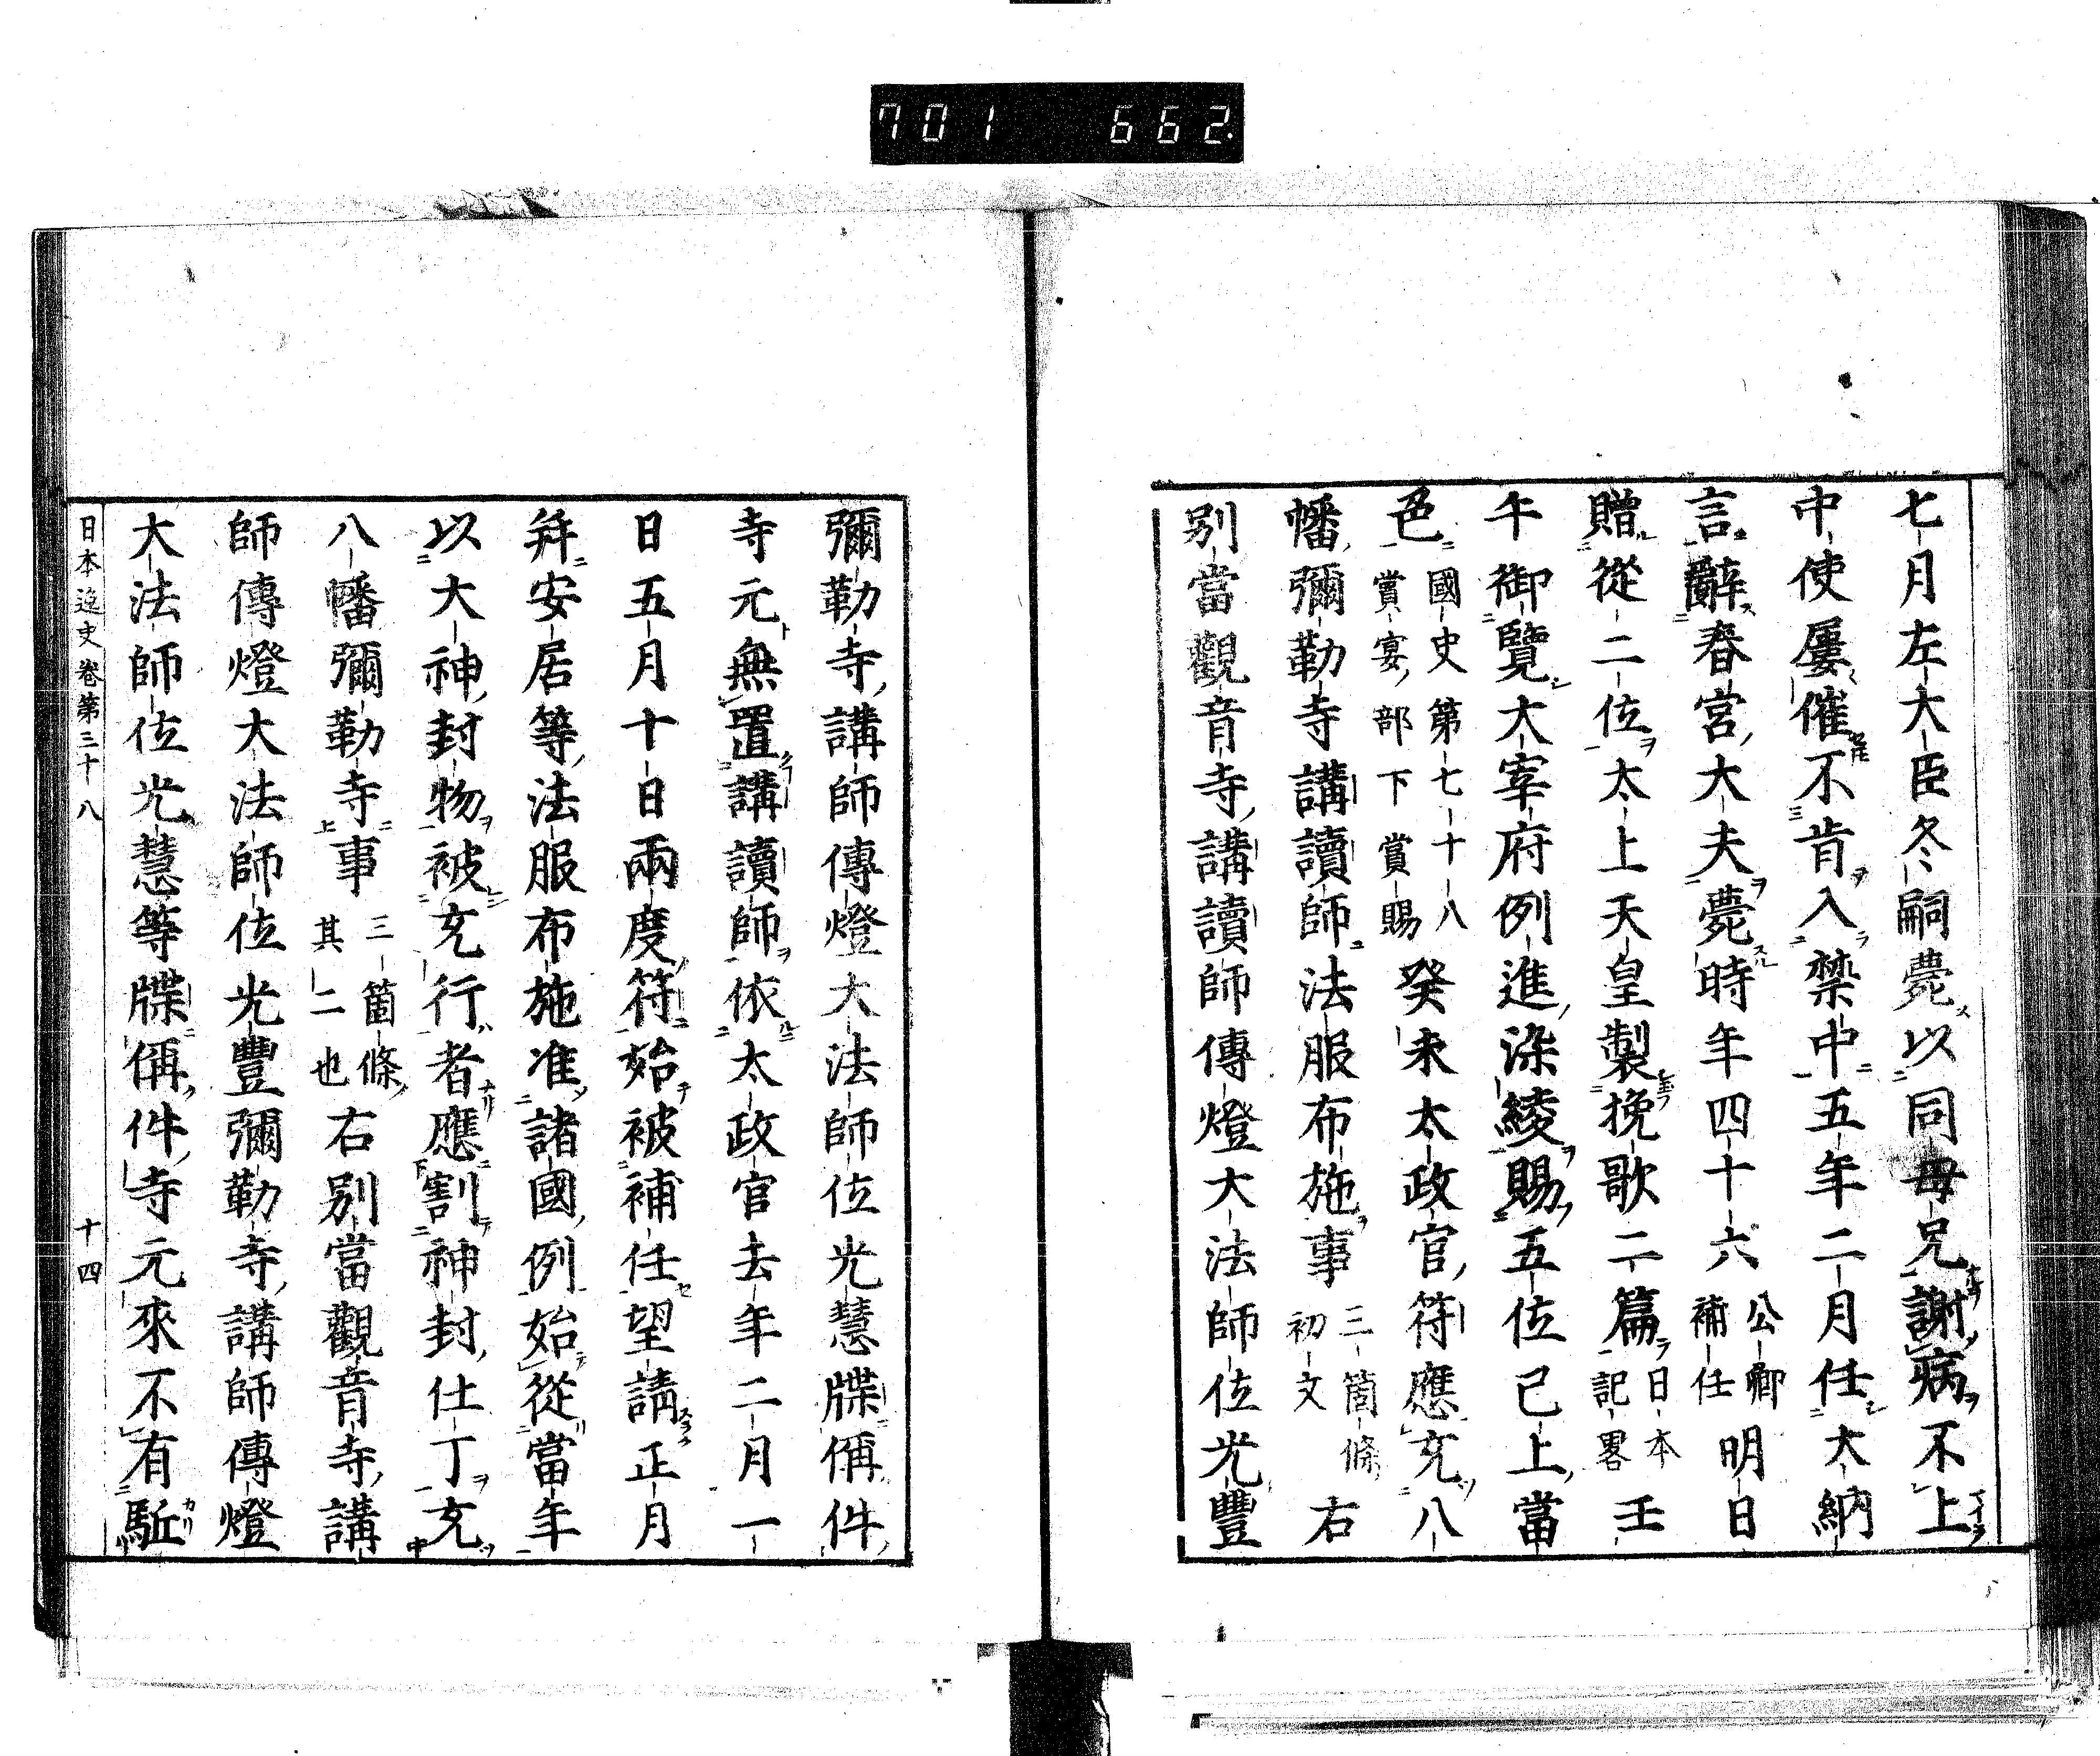 701 662
七月左大臣冬嗣薨以同母兄謝病不上
中使屢催不肯入禁中五年二月任大納
言辭春宮大夫薨時年四十六公卿補任明日
贈從二位太上天皇製挽歌二篇日本記畧壬
午御覽大宰府例進染綾賜五位已上當
色國史第七十八賞宴部下賞賜癸未太政官符應充八
幡彌勒寺講讀師法服布施事三箇條初文右
別當觀音寺講讀師傳燈大法師位光豐
彌勒寺講師傳燈大法師位光慧牒偁件
寺元無置講讀師依太政官去年二月一
日五月十日兩度符始被補任望請正月
并安居等法服布施准諸國例始從當年
以大神封物被充行者應割神封仕丁充
八幡彌勒寺事三箇條其二也右別當觀音寺講
師傳燈大法師位光豐彌勒寺講師傳燈
大法師位光慧等牒偁件寺元來不有駈
日本逸史卷第三十八 十四